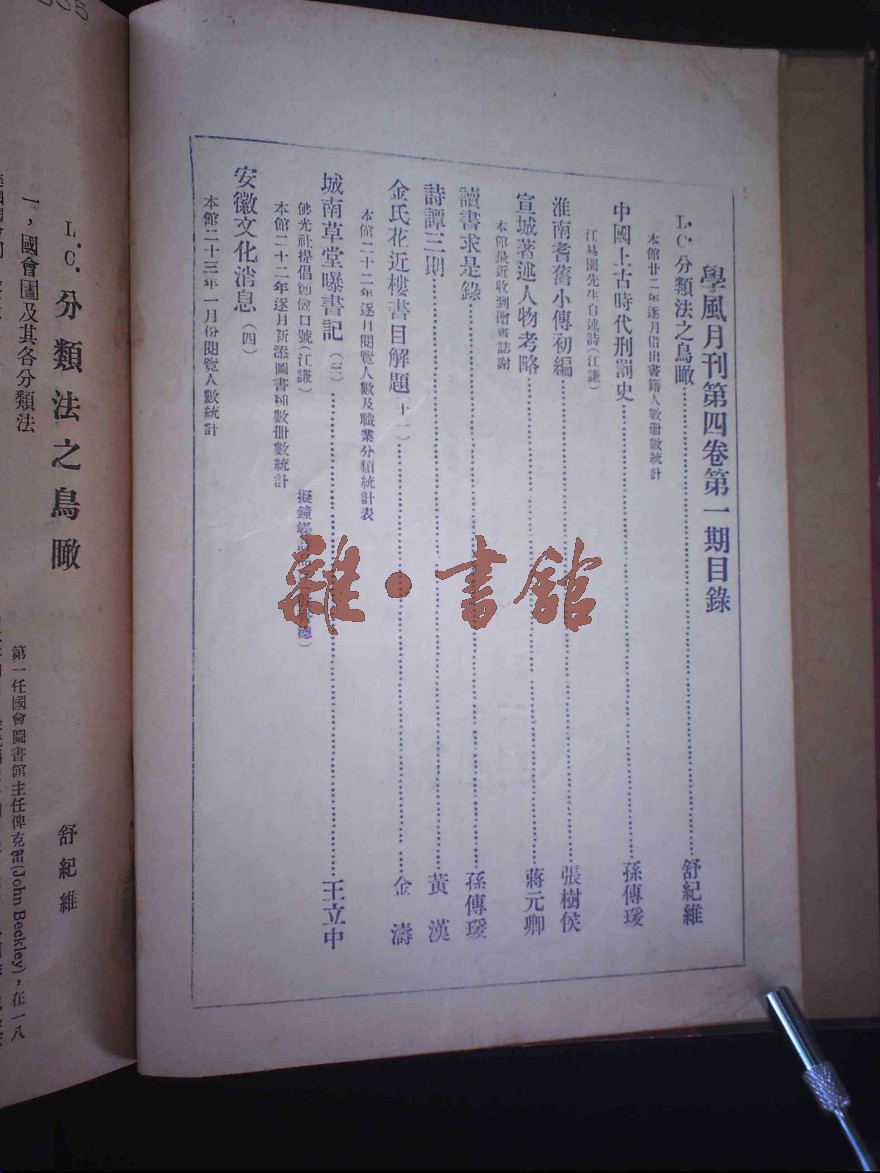 學風月刊第四卷第一期目錄
L.C.分類法之鳥瞰 舒紀維
本館廿二年逐月借出書籍人數冊數統計
中國上古時代刑罰史 孫傳瑗
江易園先生自述詩(江謙)
淮南耆舊小傳初編 張樹侯
宣城著述人物考略 蔣元卿
本館最近收到贈書誌謝
讀書求是錄 孫傳瑗
詩譚三則 黃漢
金氏花近樓書目解題(十一) 金濤
本館二十二年逐月閱覽人數及職業分類統計表
城南草堂曝書記(三) 王立中
佛光社提倡 口號(江謙) 擬鐘
本館二十二年逐月新添圖書種數冊數統計
安徽文化消息(四)
本館二十三年一月份閱覽人數統計
雜·書館
L.C.分類法之鳥瞰
舒紀維
一,國會圖及其各分類法
第一任國會圖書館主任俾克雷(John Beckley),在一八